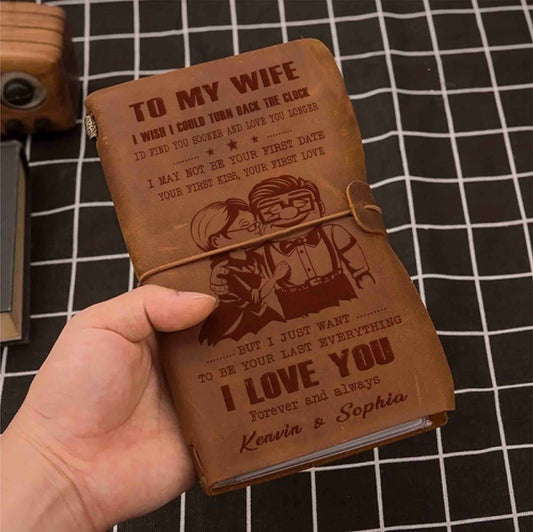 TO MY WIFE
I WISH I COULD TURN BACK THE CLOCK
I'D FIND YOU SOONER AND LOVE YOU LONGER
......... ★ ★ ★ .........
I MAY NOT BE YOUR FIRST DATE
YOUR FIRST KISS, YOUR FIRST LOVE
......... BUT I JUST WANT .........
TO BE YOUR LAST EVERYTHING
I LOVE YOU
Forever and always
Kenvin & Sophia